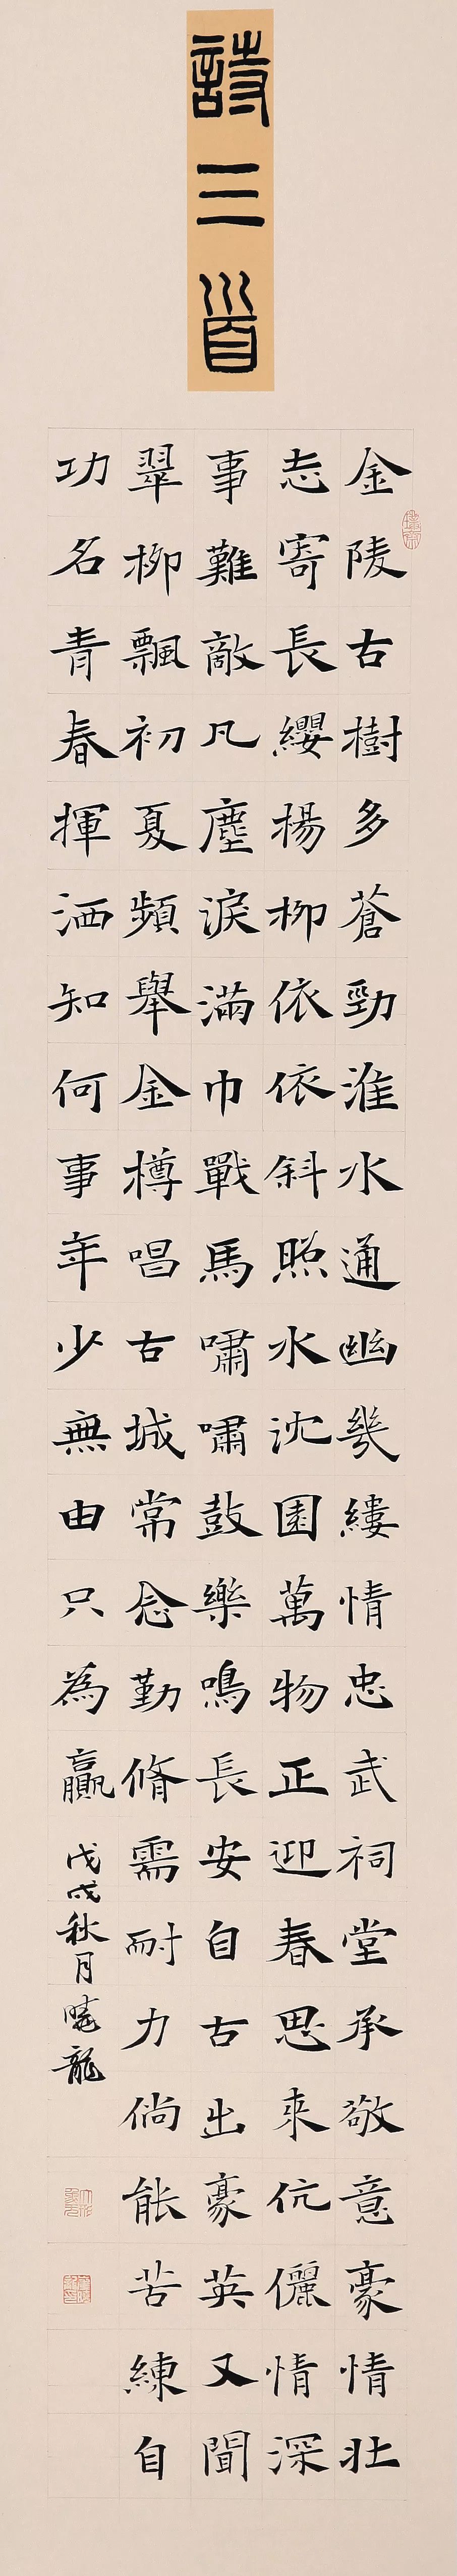 詩三首
金陵古樹多蒼勁淮水通幽幾縷情忠武祠堂承敬意豪情壯
志寄長纓楊柳依依斜照水沈園萬物正迎春思來伉儷情深
事難敵凡塵淚滿巾戰馬嘯嘯鼓樂鳴長安自古出豪英又聞
翠柳飄初夏頻舉金樽唱古城常念勤脩需耐力倘能苦練自
功名青春揮洒知何事年少無由只為贏
戊戌秋月曉龍